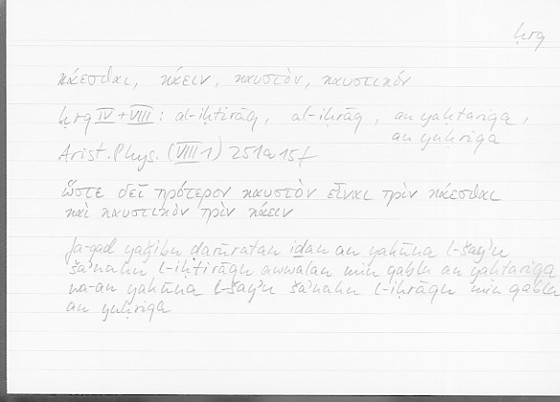 ḥrq
κάεσθαι, κάειν, καυστὸν, καυστικόν
ḥrq IV + VIII: al-iḥtirāq, al-iḥrāq, an yaḥtariqa,
an yuḥriqa
Arist. Phys. (VIII 1) 251a15f
ὥστε δεῖ πρότερον καυστὸν εἶναι πρὶν κάεσθαι
καὶ καυστικὸν πρὶν κάειν
fa-qad yaǧibu ḍarūratan iḏan an yakūna l-šayʾu
šaʾnuhu l-iḥtirāqu awwalan min qablu an yaḥtariqa
wa-an yakūna l-šayʾu šaʾnuhu l-iḥrāqu min qabli
an yuḥriqa